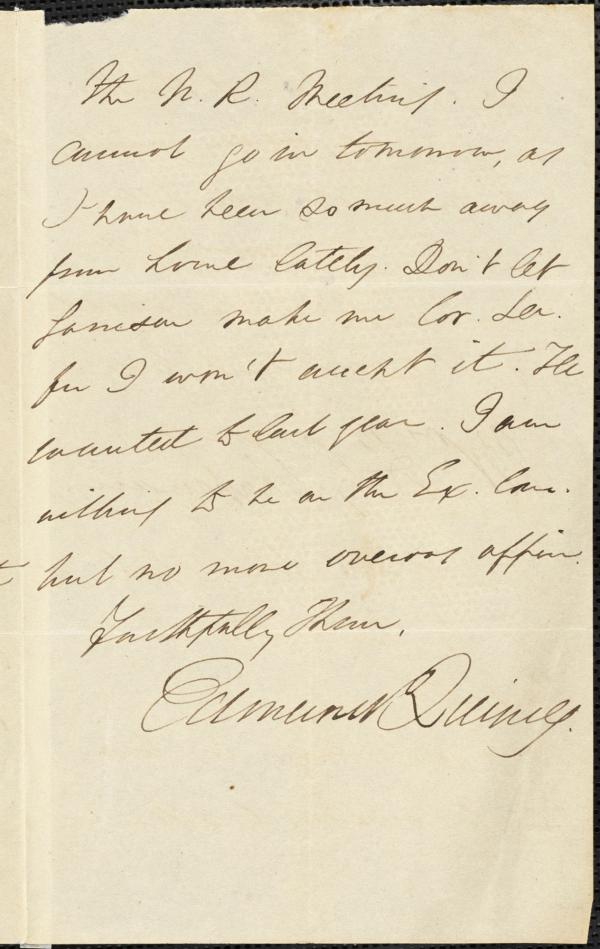 the N. R. Meeting. I
cannot go in tomorrow, as
I have been so much away
from home lately. Don't let
Garrison make me Cor. Sec.
for I won't accept it. He
wanted to last year. I am
willing to be on the Ex. Com.
but no more onerous office.
Faithfully Thine,
Edmund Quincy.